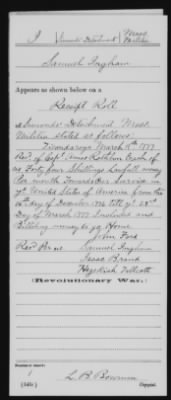 I | Simonds' Detachment | Mass. Militia
Samuel Ingham
Appears as shown below on a
Receipt Roll
Simonds' Detachment Mass.
Militia stated as follows:
Ticonderoga March 11th 1777
Recd of Capt. Amos Rathbun Each of
us Forty four Shillings Lawfull mony
for month Towards our Service in
ye United States of America from the
16th day of December 1776 till ye 25th
Day of March 1777 Inclusive and
Billiting money to go Home
John Ford
Recd Per us Samuel Ingham
Isaac Brand
Hezekiah
(Revolutionary War.)
L. B. Bowman
Copyist.